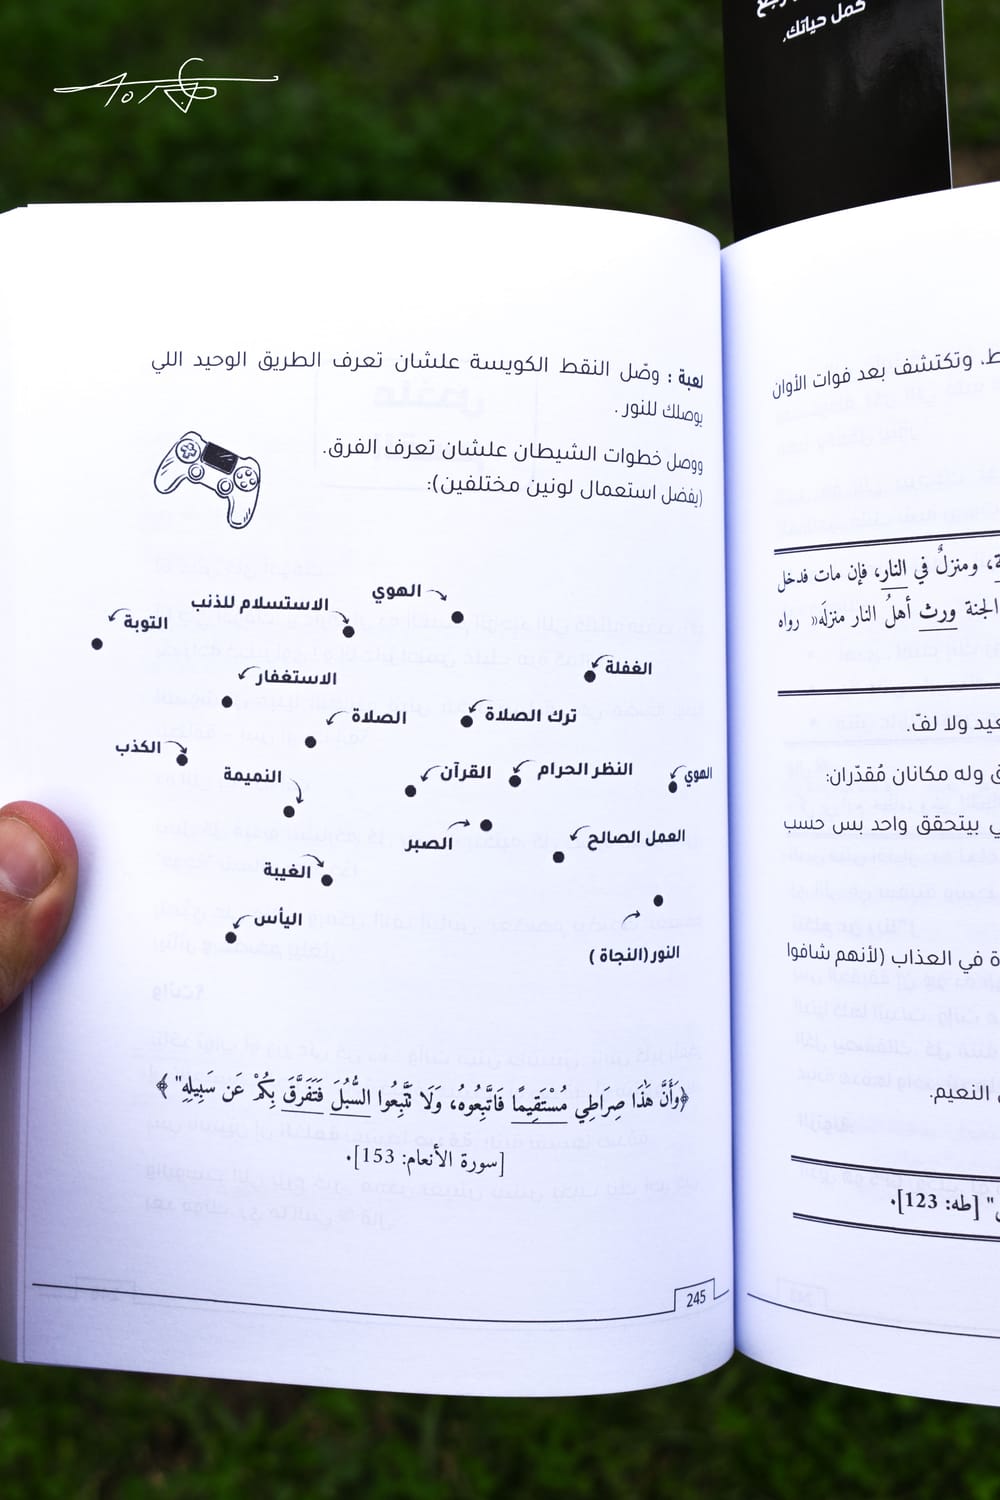 كمل حياتك.
لعبة : وصّل النقط الكويسة علشان تعرف الطريق الوحيد اللي
يوصلك للنور .
ووصل خطوات الشيطان علشان تعرف الفرق.
(يفضل استعمال لونين مختلفين):
الهوي
الاستسلام للذنب
التوبة
الغفلة
الاستغفار
ترك الصلاة
الصلاة
الكذب
النظر الحرام
القرآن
النميمة
الهوي
العمل الصالح
الصبر
الغيبة
اليأس
النور (النجاة )
﴿وَأَنَّ هَٰذَا صِرَاطِي مُسْتَقِيمًا فَاتَّبِعُوهُ، وَلَا تَتَّبِعُوا السُّبُلَ فَتَفَرَّقَ بِكُمْ عَن سَبِيلِهِ" ﴾
[سورة الأنعام: 153].
245
وتكتشف بعد فوات الأوان
، ومنزلٌ في النار، فإن مات فدخل
الجنة ورث أهلُ النار منزلَه« رواه
ولا لفّ.
وله مكانان مُقدّران:
بيتحقق واحد بس حسب
في العذاب (لأنهم شافوا
النعيم.
" [طه: 123].